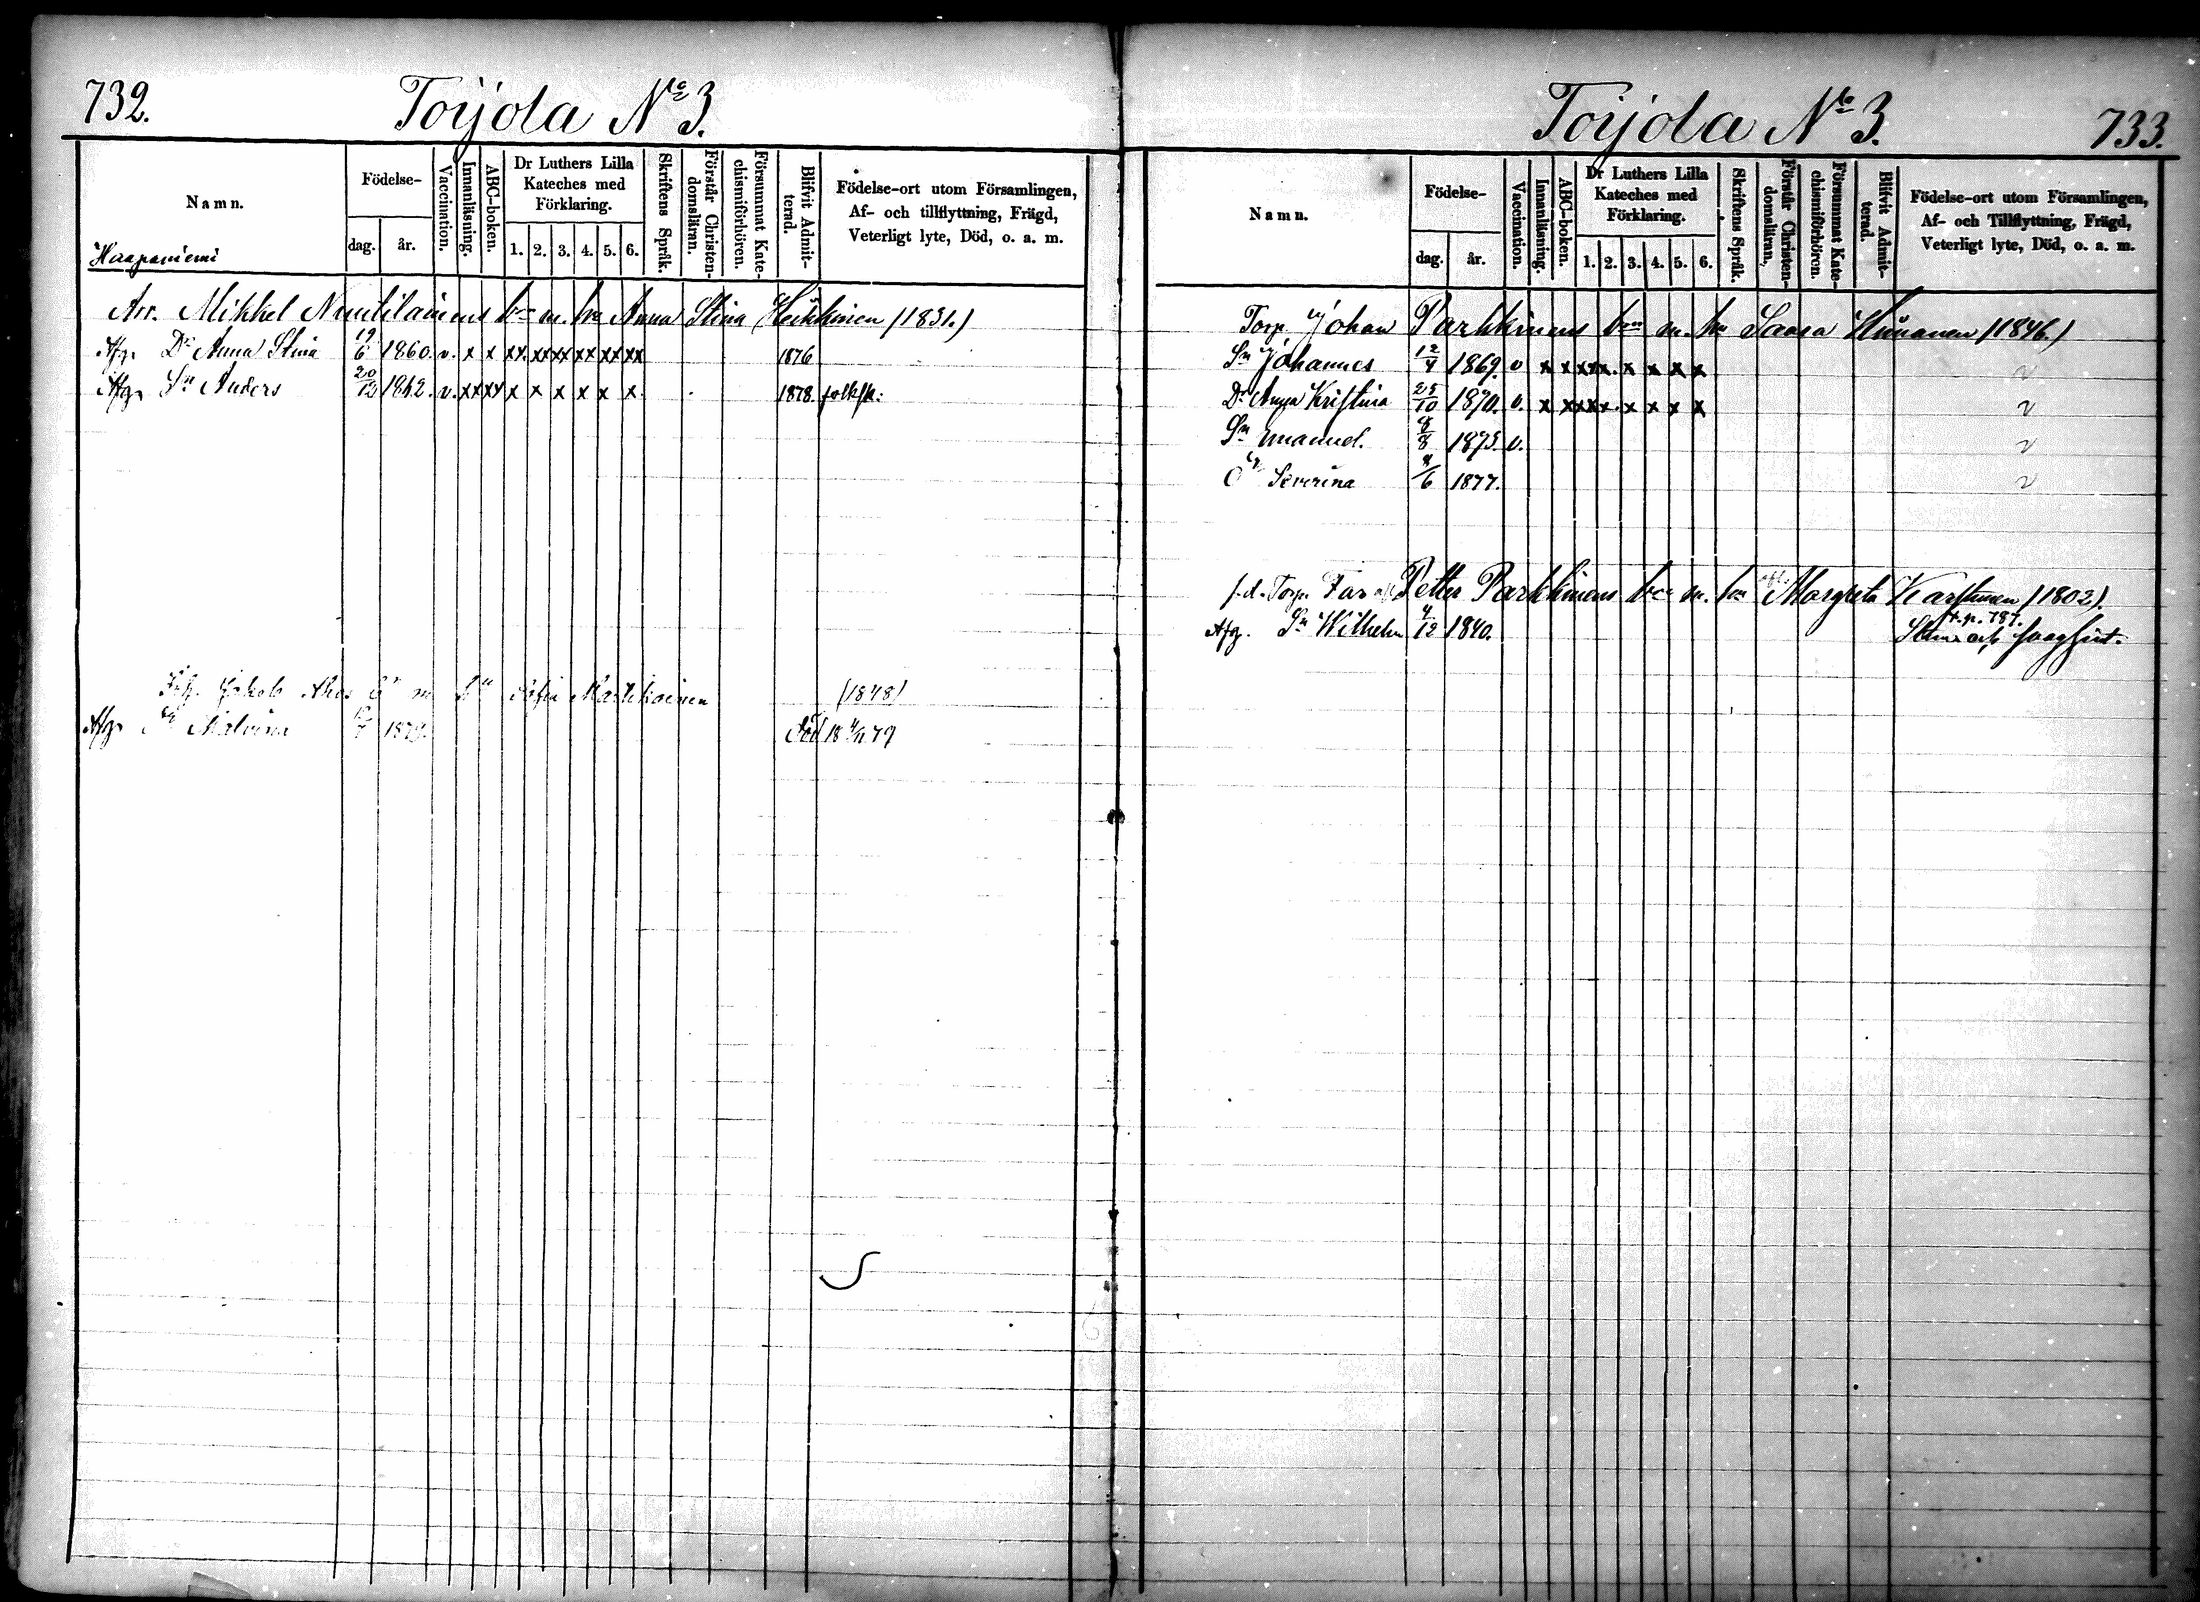 732.
Toijola No 3.
Namn.
Födelse-
dag. år.
Vaccination.
Innanläsning.
ABC-boken.
Dr Luthers Lilla Kateches med Förklaring.
1. 2. 3. 4. 5. 6.
Skriftens Språk.
Förstår Christendomsläran.
Försummat Katechismiförhören.
Blifvit Admitterad.
Födelse-ort utom Församlingen, Af- och tillflyttning, Frägd, Veterligt lyte, Död, o. a. m.
Haapaniemi
Arr. Mikkel Nuutilainens m. Anna Stina Heikkinen (1831.)
Afg. Dr Anna Stina 19/6 1860. v. x x xx. xx xx xx xx xx 1876
Afg. Sn Anders 20/12 1862. v. xx xx x x x x x x 1878. folksk:
Jakob m Sofia Martikainen (1848)
Afg. Malvina 1879. Död 18 4/11 79
Toijola No 3.
733.
Namn.
Födelse-
dag. år.
Vaccination.
Innanläsning.
ABC-boken.
Dr Luthers Lilla Kateches med Förklaring.
1. 2. 3. 4. 5. 6.
Skriftens Språk.
Förstår Christendomsläran.
Försummat Katechismiförhören.
Blifvit Admitterad.
Födelse-ort utom Församlingen, Af- och Tillflyttning, Frägd, Veterligt lyte, Död, o. a. m.
Torp. Johan Parkkinens m. Saara Kinanen (1846.)
Sn Johannes 12/4 1869. v x xx xx. x x x x
Dr Anna Kristina 25/10 1870. v. x xx xx. x x x x
Sn Manuel. 8/8 1875. v.
Severina 4/6 1877.
f.d. Torp. Far Petter Parkkinens m. Margreta Karstunen (1802).
t. p. 787.
Afg. Sn Wilhelm 4/12 1840. och